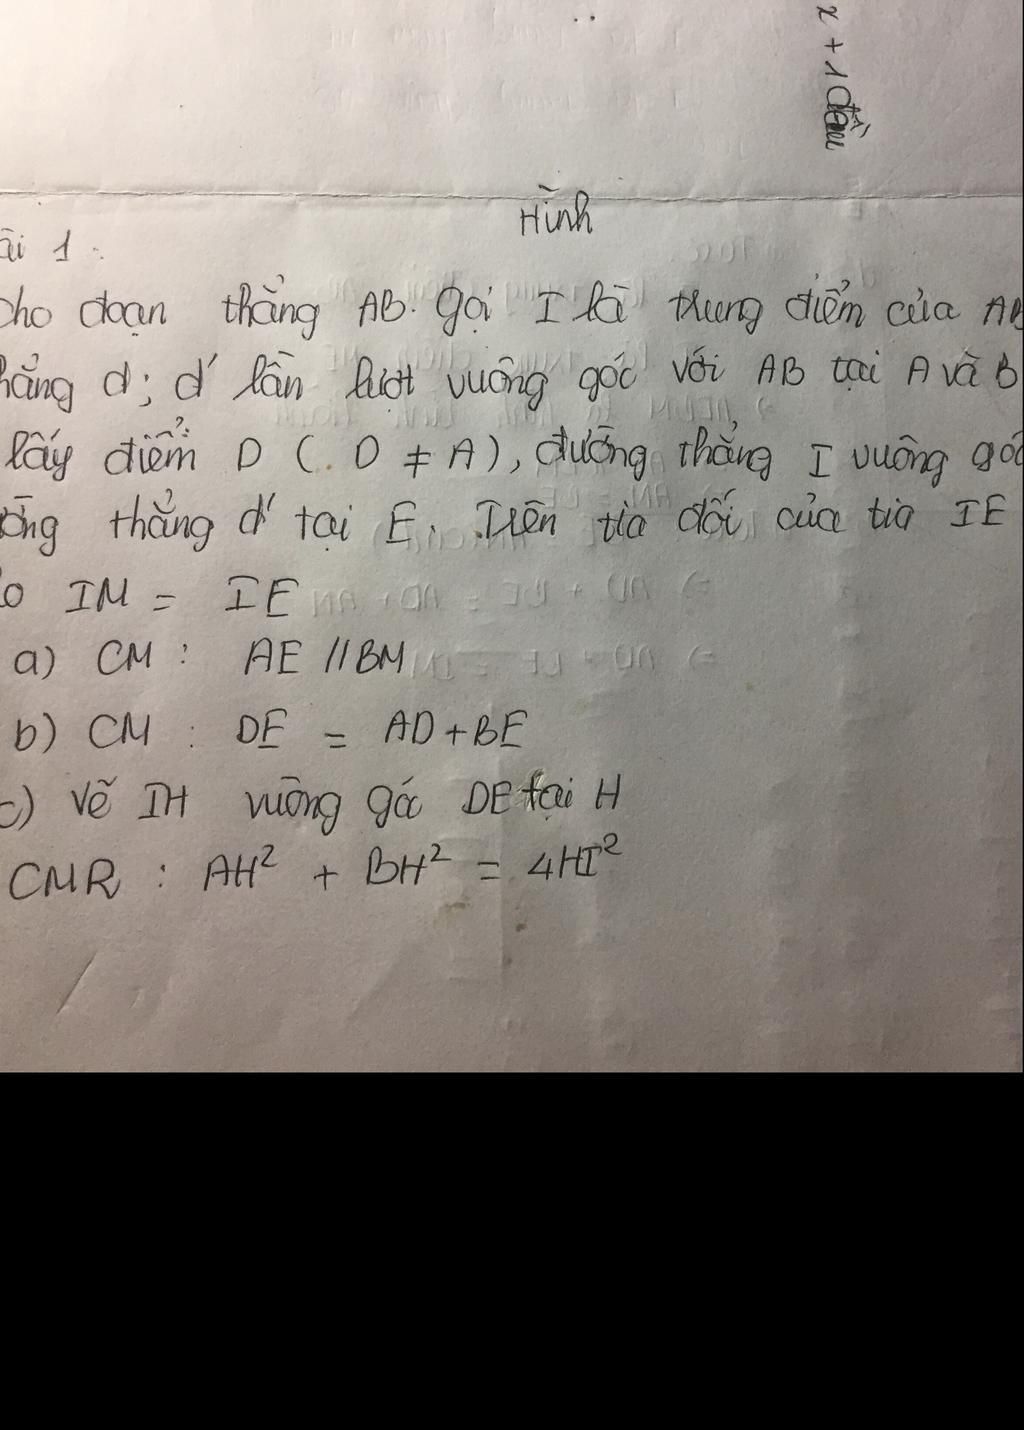 x + 1 đều
Hình
ài 1 :
cho đoạn thẳng AB. Gọi I là trung điểm của AB
hẳng d; d' lần lượt vuông góc với AB tại A và B
lấy điểm D ( D ≠ A), đường thẳng I vuông góc
ờng thẳng d' tại E. Trên tia đối của tia IE
o IM = IE
a) CM : AE // BM
b) CM : DE = AD + BE
c) Vẽ IH vuông góc DE tại H
CMR : AH² + BH² = 4HI²